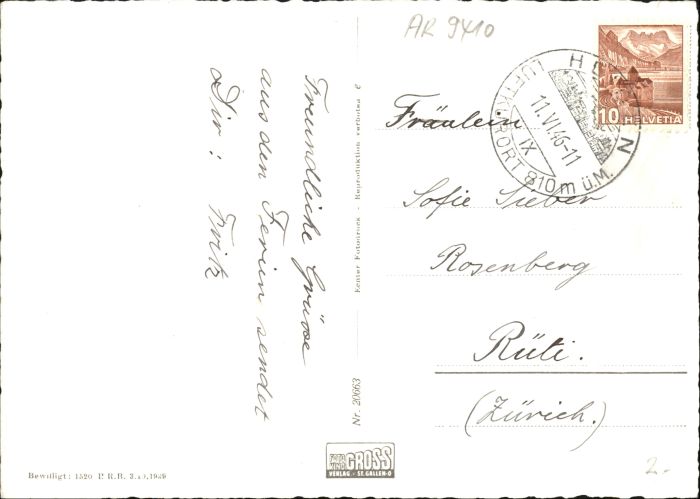 AR 9410
Freundliche Grüsse
aus den Ferien sendet
Dir: Fritz
Echter Fotodruck - Reproduktion verboten
Nr. 20663
FOTO
GROSS
VERLAG - ST. GALLEN-O
Bewilligt: 1520 P. R. B. 3.10.1939
LUFTKURORT 810 m ü.M.
11.VI.46-11
IX
10 HELVETIA
Fräulein
Sofie Sieber
Rosenberg
Rüti.
(Zürich.)
2.-